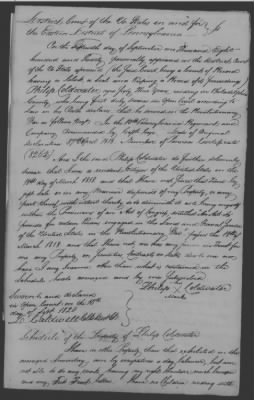 District Court of the U States in and for
the Eastern District of Pennsylvania
On the fifteenth day of September one Thousand Eight
hundred and twenty, personally appeared in the District Court
of the U States aforesaid (the said Court being a Court of Record
having a Clerk & Seal and keeping a Record of its proceedings)
Philip Coldwater, residing in Philadelphia
County, who being first duly sworn in Open Court according to
law on his Oath declares that he served in the Revolutionary
War as follows, In the 10th Pennsylvania Regiment and
Company commanded by Capt. Date of Original
declaration 1818 Number of Pension Certificate
And I the said Philip Coldwater do further solemnly
swear that I was a resident Citizen of the United States on the
18th day of March 1818 and that I have not since that time by
gift sale or in any Manner disposed of my Property, or any
part thereof with intent thereby so to diminish it as to bring myself
within the Provisions of an Act of Congress entitled An Act to
provide for certain Persons engaged in the Land and Naval Service
of the United States in the Revolutionary War passed the 18th
March 1818 and that I have not nor has any Person in Trust for
me any Property, or Securities Contracts or Debts due to me nor
have I any Income other than what is contained in the
Schedule hereto annexed and by me Subscribed
Philip X Coldwater
Mark
Sworn to and declared
in Open Court on the 15th
day of Sept 1820
D. Caldwell Clk Dist Ct
Schedule of the Property of Philip Coldwater
I have no other Property than that exhibited in the
annexed Inventory, am by occupation a day labourer, but am
not able to do any work, having my right
I have no Children residing with